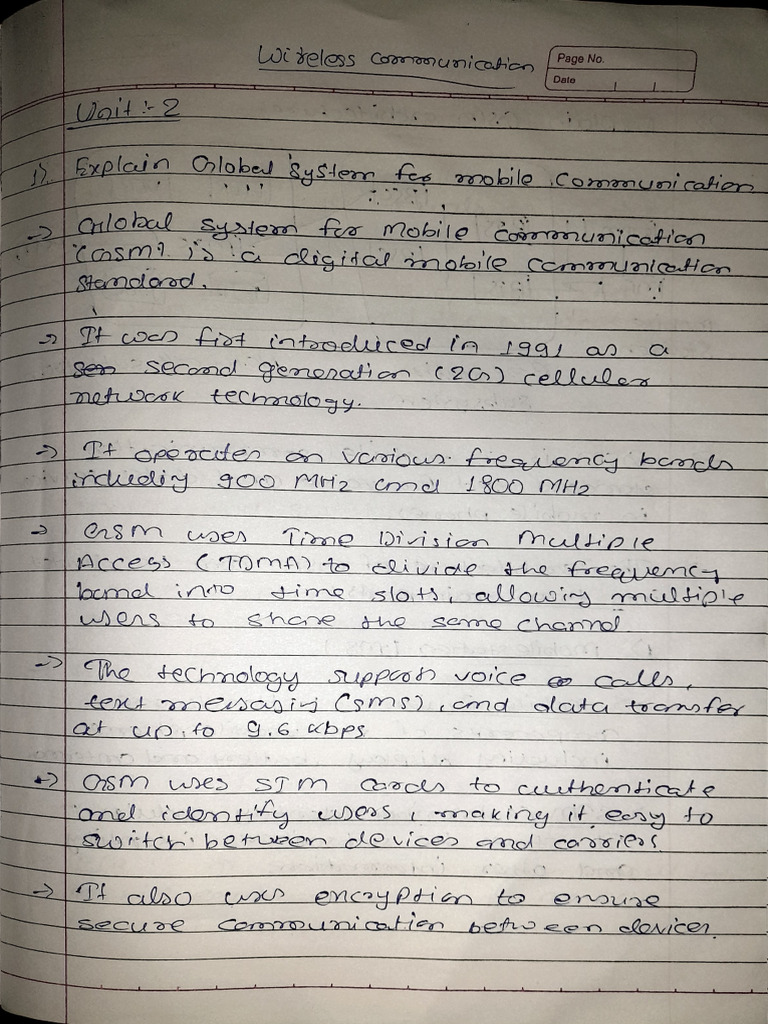 Wireless communication
Page No.
Date
Unit :- 2
1) Explain Global System for mobile communication
-> Global system for Mobile communication
(GSM) is a digital mobile communication
standard.
-> It was first introduced in 1991 as a
second generation (2G) cellular
network technology.
-> It operates on various frequency bands
including 900 MHz and 1800 MHz
-> GSM uses Time Division Multiple
Access (TDMA) to divide the frequency
band into time slots, allowing multiple
users to share the same channel.
-> The technology supports voice calls,
text messaging (SMS), and data transfer
at up to 9.6 kbps
-> GSM uses SIM cards to authenticate
and identify users, making it easy to
switch between devices and carriers
-> It also uses encryption to ensure
secure communication between devices.